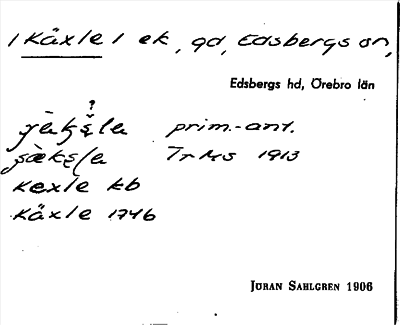 /Käxle/ ek, gd, Edsbergs sn,
Edsbergs hd, Örebro län
?
prim.-ant.
Tr Ms 1913
Kexle kb
Käxle 1746
JÖRAN SAHLGREN 1906